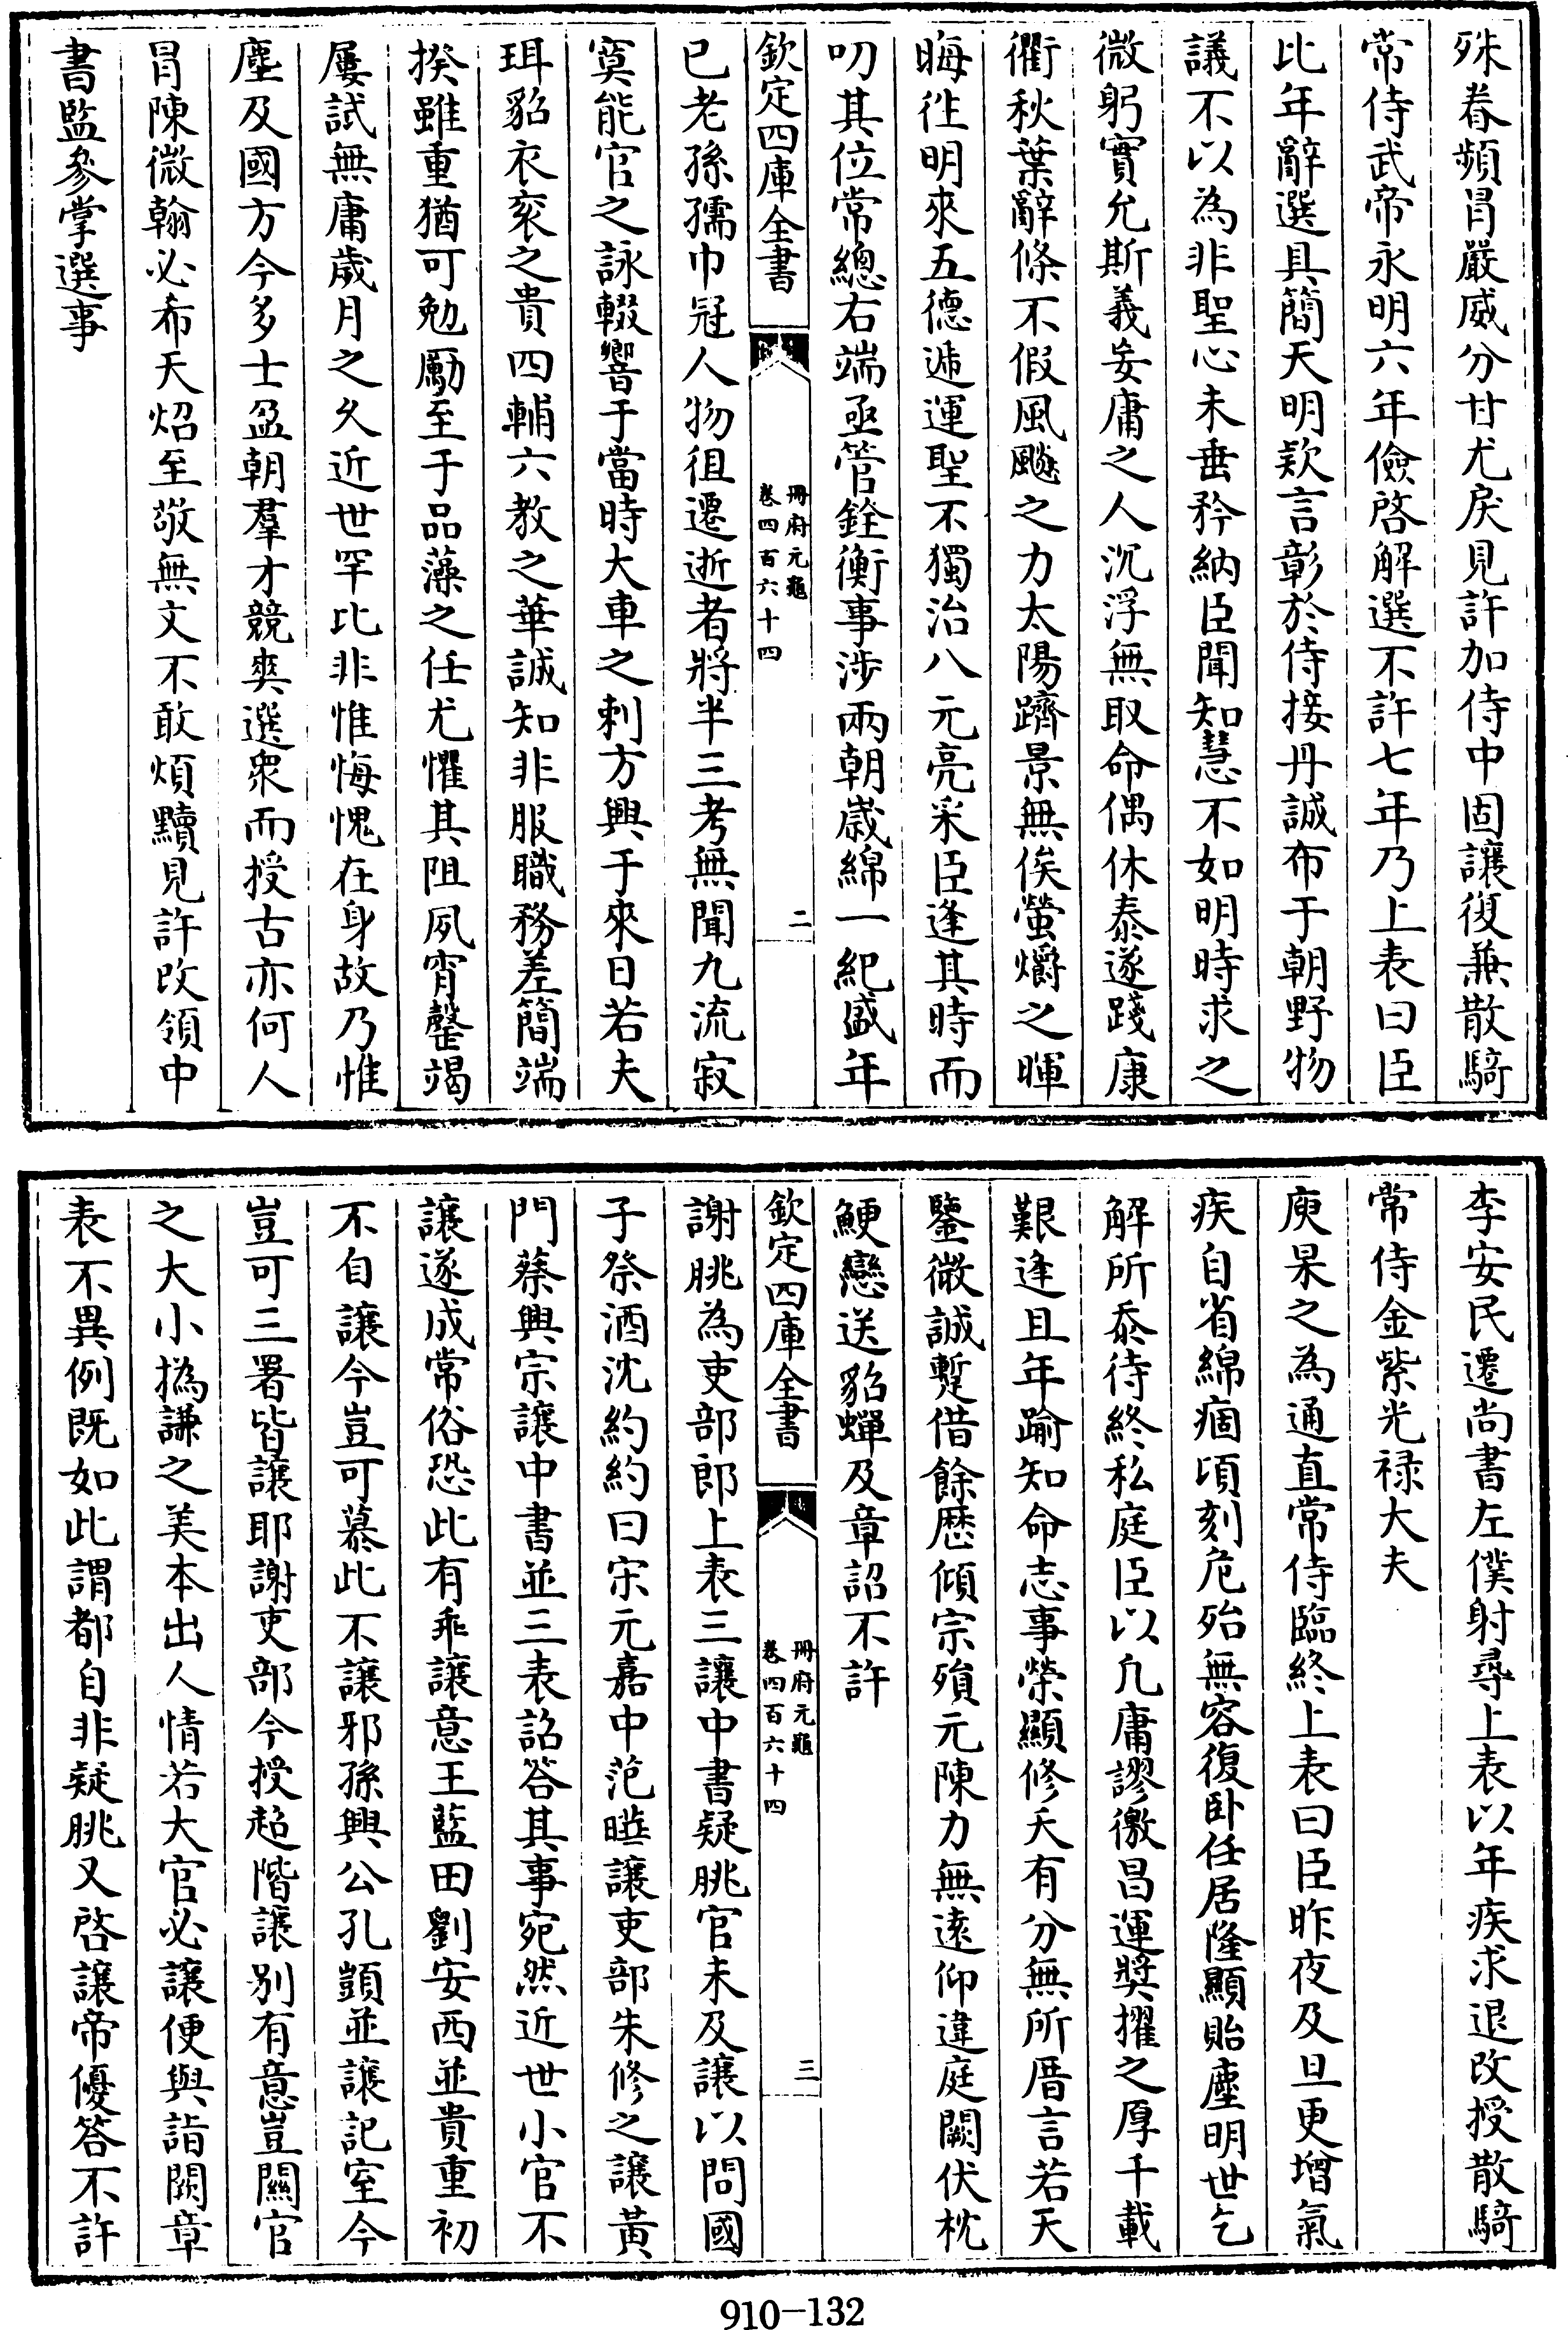 殊眷頻冒嚴威分甘尤戾見許加侍中固讓復兼散騎
常侍武帝永明六年儉啓解選不許七年乃上表曰臣
比年辭選具簡天明欵言彰於侍接丹誠布于朝野物
議不以為非聖心未垂矜納臣聞知慧不如明時求之
微躬實允斯義妄庸之人沉浮無取命偶休泰遂踐康
衢秋葉辭條不假風飈之力太陽躋景無俟螢爝之暉
晦往明來五德遞運聖不獨治八元亮采臣逢其時而
叨其位常總右端亟管銓衡事涉兩朝嵗綿一紀盛年
欽定四庫全書
冊府元龜
卷四百六十四
二
已老孫孺巾冠人物徂遷逝者將半三考無聞九流寂
寞能官之詠輟響于當時大車之刺方興于來日若夫
珥貂衣衮之貴四輔六教之華誠知非服職務差簡端
揆雖重猶可勉勵至于品藻之任尤懼其阻夙宵罄竭
屢試無庸歲月之乆近世罕比非惟悔愧在身故乃惟
塵及國方今多士盈朝羣才競爽選衆而授古亦何人
冒陳微翰必希天炤至敬無文不敢煩黷見許改領中
書監參掌選事
李安民遷尚書左僕射尋上表以年疾求退改授散騎
常侍金紫光祿大夫
庾杲之為通直常侍臨終上表曰臣昨夜及旦更增氣
疾自省綿痼頃刻危殆無容復卧任居隆顯貽塵明世乞
解所忝待終私庭臣以凢庸謬徼昌運奬擢之厚千載
艱逢且年踰知命志事榮顯修夭有分無所厝言若天
鑒微誠蹔借餘厯傾宗殞元陳力無遠仰違庭闕伏枕
鯁戀送貂蟬及章詔不許
欽定四庫全書
冊府元龜
卷四百六十四
三
謝朓為吏部郎上表三讓中書疑朓官未及讓以問國
子祭酒沈約約曰宋元嘉中范曄讓吏部朱修之讓黃
門蔡興宗讓中書並三表詔答其事宛然近世小官不
讓遂成常俗恐此有乖讓意王藍田劉安西並貴重初
不自讓今豈可慕此不讓邪孫興公孔顗並讓記室今
豈可三署皆讓耶謝吏部今授超階讓别有意豈關官
之大小撝謙之美本出人情若大官必讓便與詣闕章
表不異例既如此謂都自非疑朓又啓讓帝優答不許
910-132